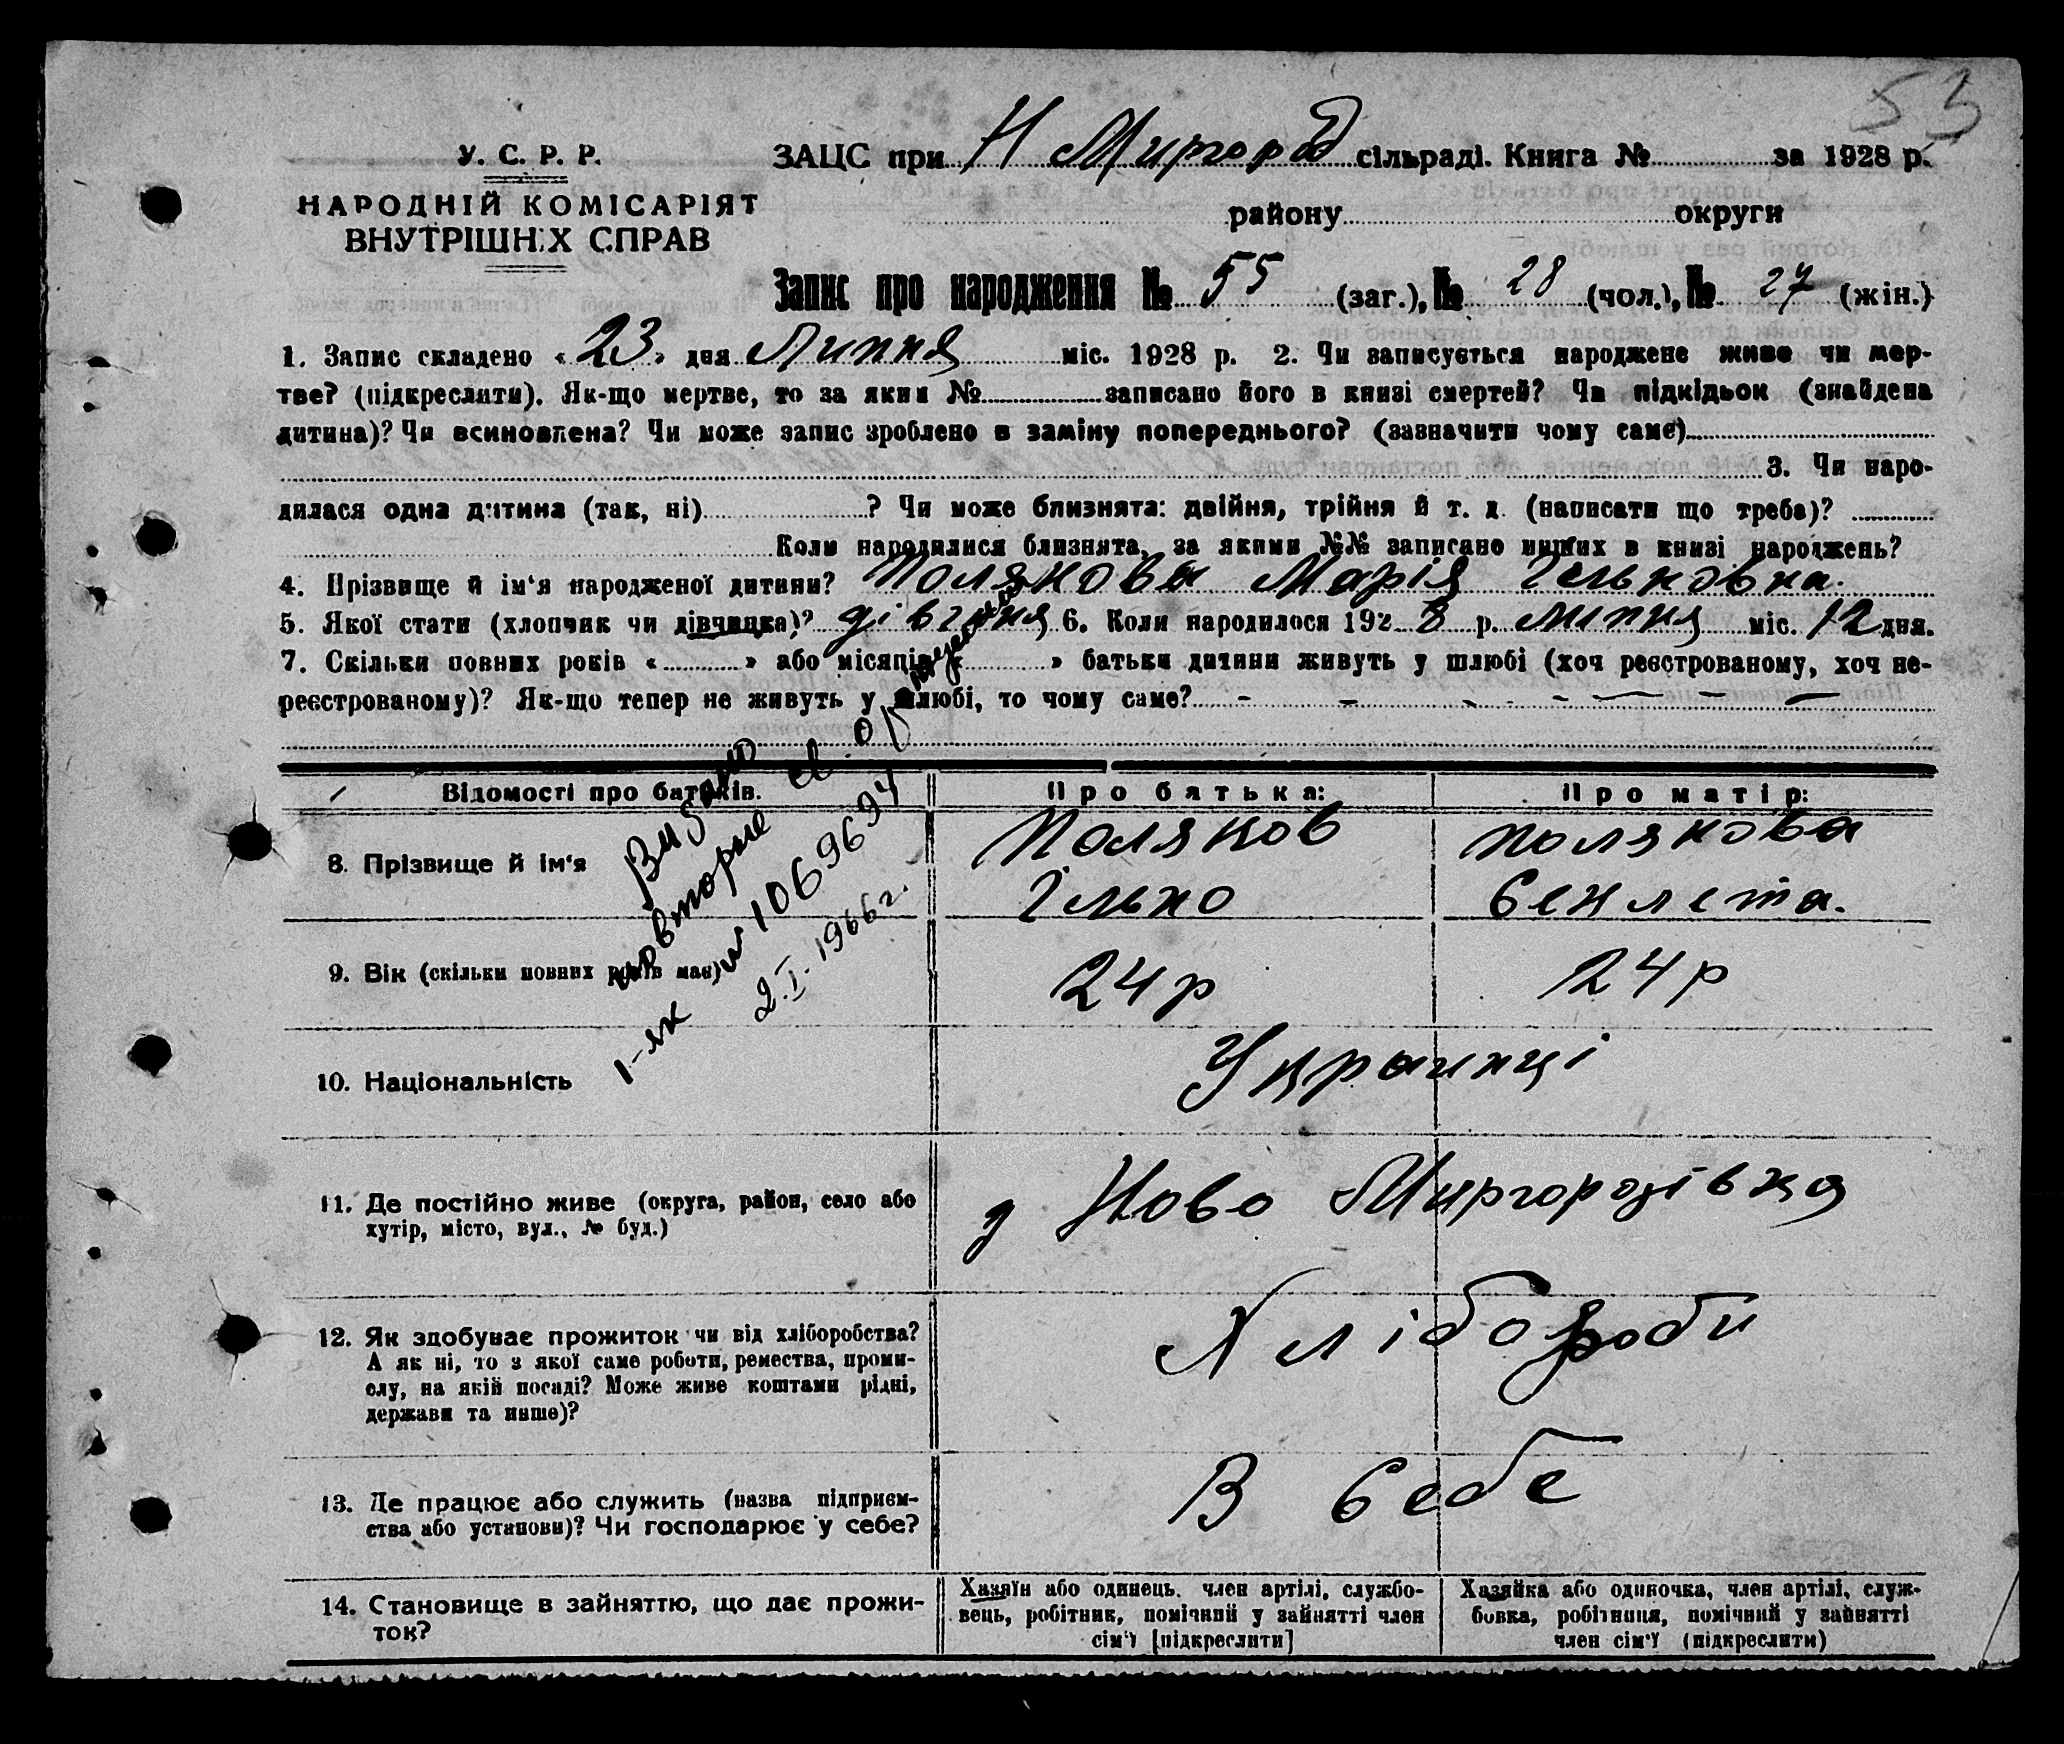 53
У. С. Р. Р.
НАРОДНІЙ КОМІСАРІЯТ
ВНУТРІШНІХ СПРАВ
ЗАЦС при Н Миргород сільраді. Книга № за 1928 р.
району округи
Запис про народження № 55 (заг.), № 28 (чол.), № 27 (жін.)
1. Запис складено «23» дня Липня міс. 1928 р. 2. Чи записується народжене живе чи мер-
тве? (підкреслити). Як-що мертве, то за яким № записано його в книзі смертей? Чи підкідьок (знайдена
дитина)? Чи всиновлена? Чи може запис зроблено в заміну попереднього? (зазначити чому саме)
3. Чи наро-
дилася одна дитина (так, ні) ? Чи може близнята: двійня, трійня й т. д. (написати що треба)?
Коли народилися близнята, за якими №№ записано инших в книзі народжень?
4. Прізвище й ім‘я народженої дитини? Полякова Марія Ільковна.
5. Якої стати (хлопчик чи дівчинка)? дівчиня 6. Коли народилося 1928 р. липня міс. 12 дня.
7. Скільки повних років « » або місяців « » батьки дитини живуть у шлюбі (хоч реєстрованому, хоч не-
реєстрованому)? Як-що тепер не живуть у шлюбі, то чому саме? - - - - - - - -
Відомості про батьків. Про батька: Про матір:
8. Прізвище й ім‘я Поляков Полякова
Ілько Єенлета.
9. Вік (скільки повних років має) 24 р 24 р
Видано
повторне св. о
1-ЯК № 106 96 94
2.I.1966 г.
10. Національність Украинці
11. Де постійно живе (округа, район, село або
хутір, місто, вул., № буд.)
д Ново Миргородівка
12. Як здобуває прожиток чи від хліборобства?
А як ні, то з якої саме роботи, ремества, проми-
слу, на якій посаді? Може живе коштами рідні,
держави та инше)?
Хлібороби
13. Де працює або служить (назва підприєм-
ства або установи)? Чи господарює у себе?
В себе
14. Становище в зайняттю, що дає прожи-
ток?
Хазяїн або одинець, член артілі, службо-
вець, робітник, помічний у зайнятті член
сім‘ї [підкреслити]
Хазяйка або одиночка, член артілі, служ-
бовка, робітниця, помічний у зайнятті
член сім‘ї (підкреслити)